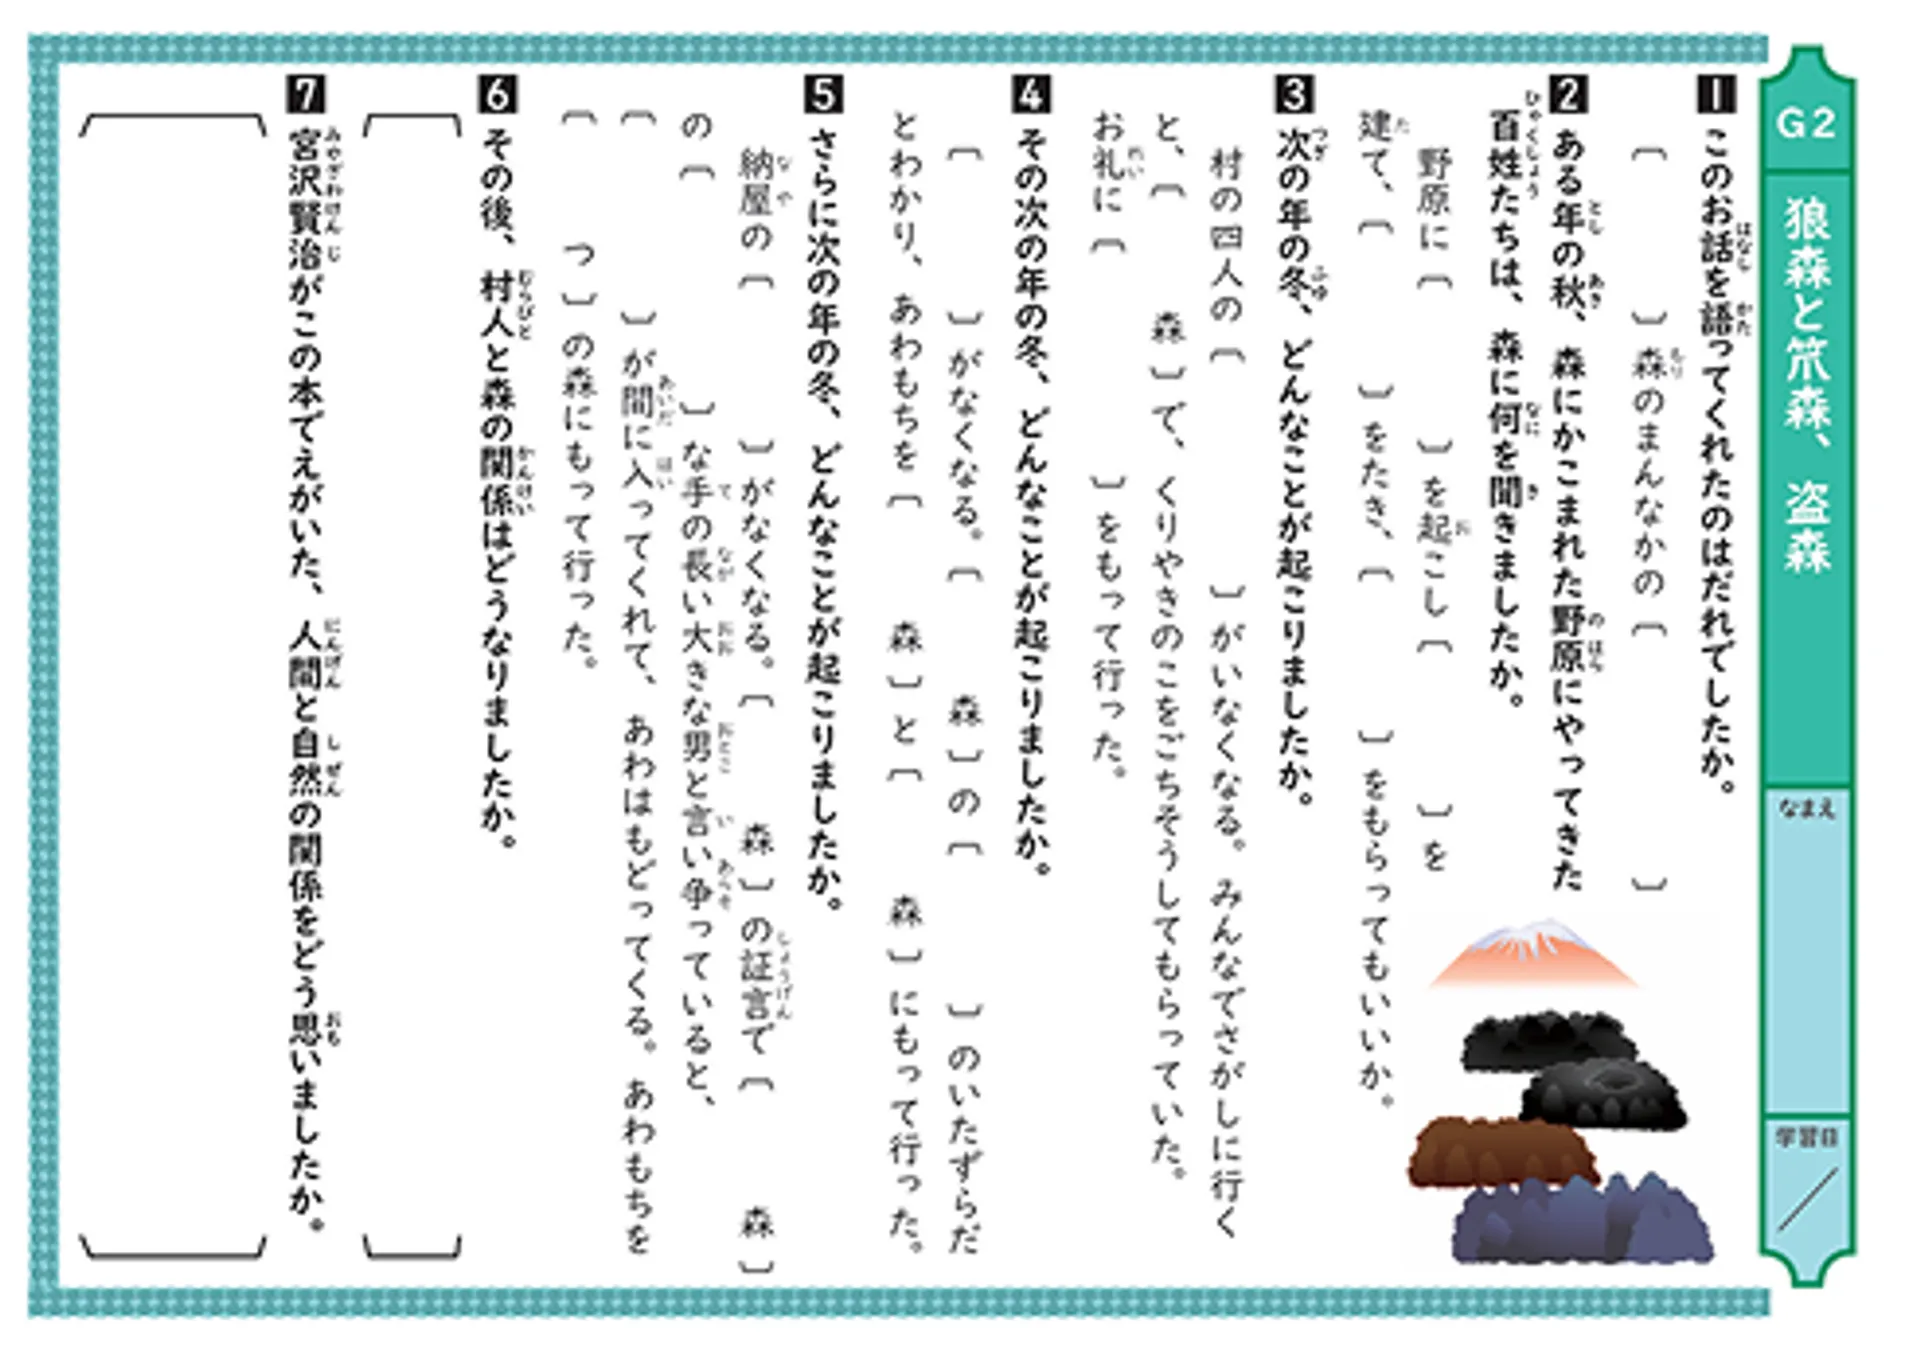 G2
狼森と笊森、盗森
なまえ
学習日
1 このお話を語ってくれたのはだれでしたか。
〔　　〕森のまんなかの〔　　〕
2 ある年の秋、森にかこまれた野原にやってきた
百姓たちは、森に何を聞きましたか。
野原に〔　　〕を起こし〔　　〕を
建て、〔　　〕をたき、〔　　〕をもらってもいいか。
3 次の年の冬、どんなことが起こりましたか。
村の四人の〔　　〕がいなくなる。みんなでさがしに行く
と、〔　　森〕で、くりやきのこをごちそうしてもらっていた。
お礼に〔　　〕をもって行った。
4 その次の年の冬、どんなことが起こりましたか。
〔　　〕がなくなる。〔　　森〕の〔　　〕のいたずらだ
とわかり、あわもちを〔　　森〕と〔　　森〕にもって行った。
5 さらに次の年の冬、どんなことが起こりましたか。
納屋の〔　　〕がなくなる。〔　　森〕の証言で〔　　森〕
の〔　　〕な手の長い大きな男と言い争っていると、
〔　　〕が間に入ってくれて、あわはもどってくる。あわもちを
〔　　つ〕の森にもって行った。
6 その後、村人と森の関係はどうなりましたか。
7 宮沢賢治がこの本でえがいた、人間と自然の関係をどう思いましたか。